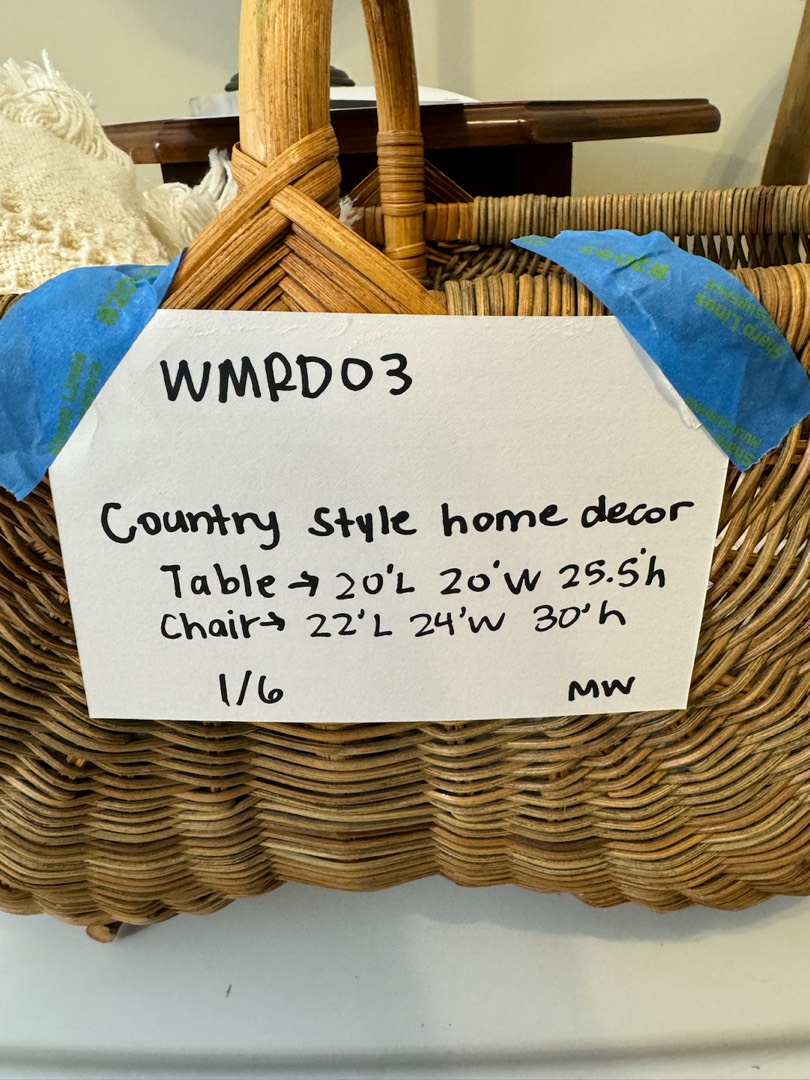 WMRD03
Country style home decor
Table → 20'L 20'W 25.5'h
Chair → 22'L 24'W 30'h
1/6 MW
Sharp Lines